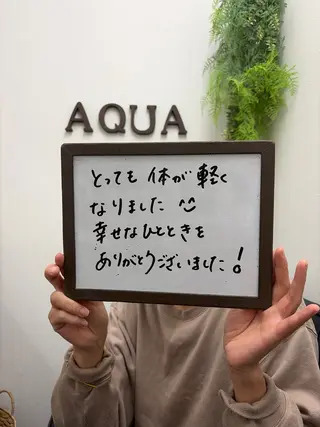 AQUA
とっても 体が 軽く
なりました ^^
幸せなひとときを
ありがとうございました!